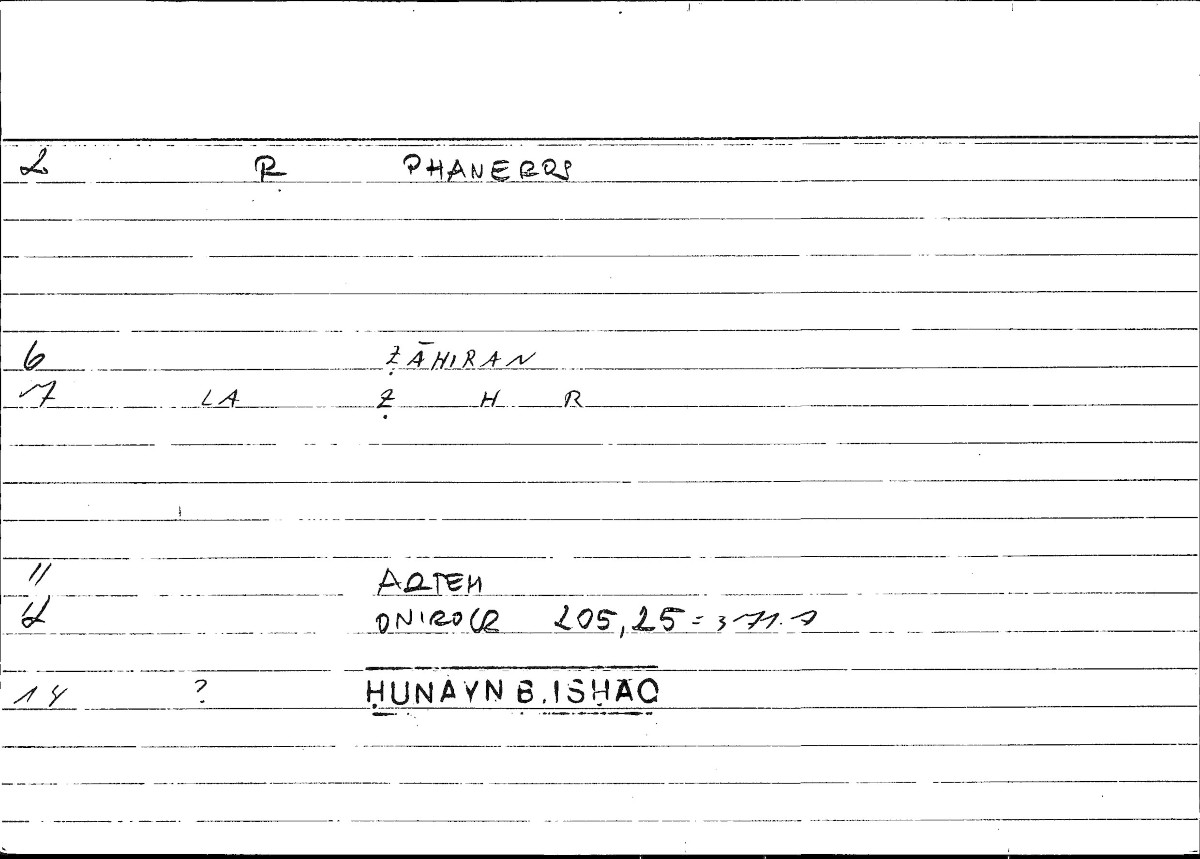 2 R PHANEROS
6 ẒĀHIRAN
7 LA Ẓ H R
11 ARTEM
12 ONIROCR 205,25 = 371.7
14 ? ḤUNAYN B. ISḤĀQ